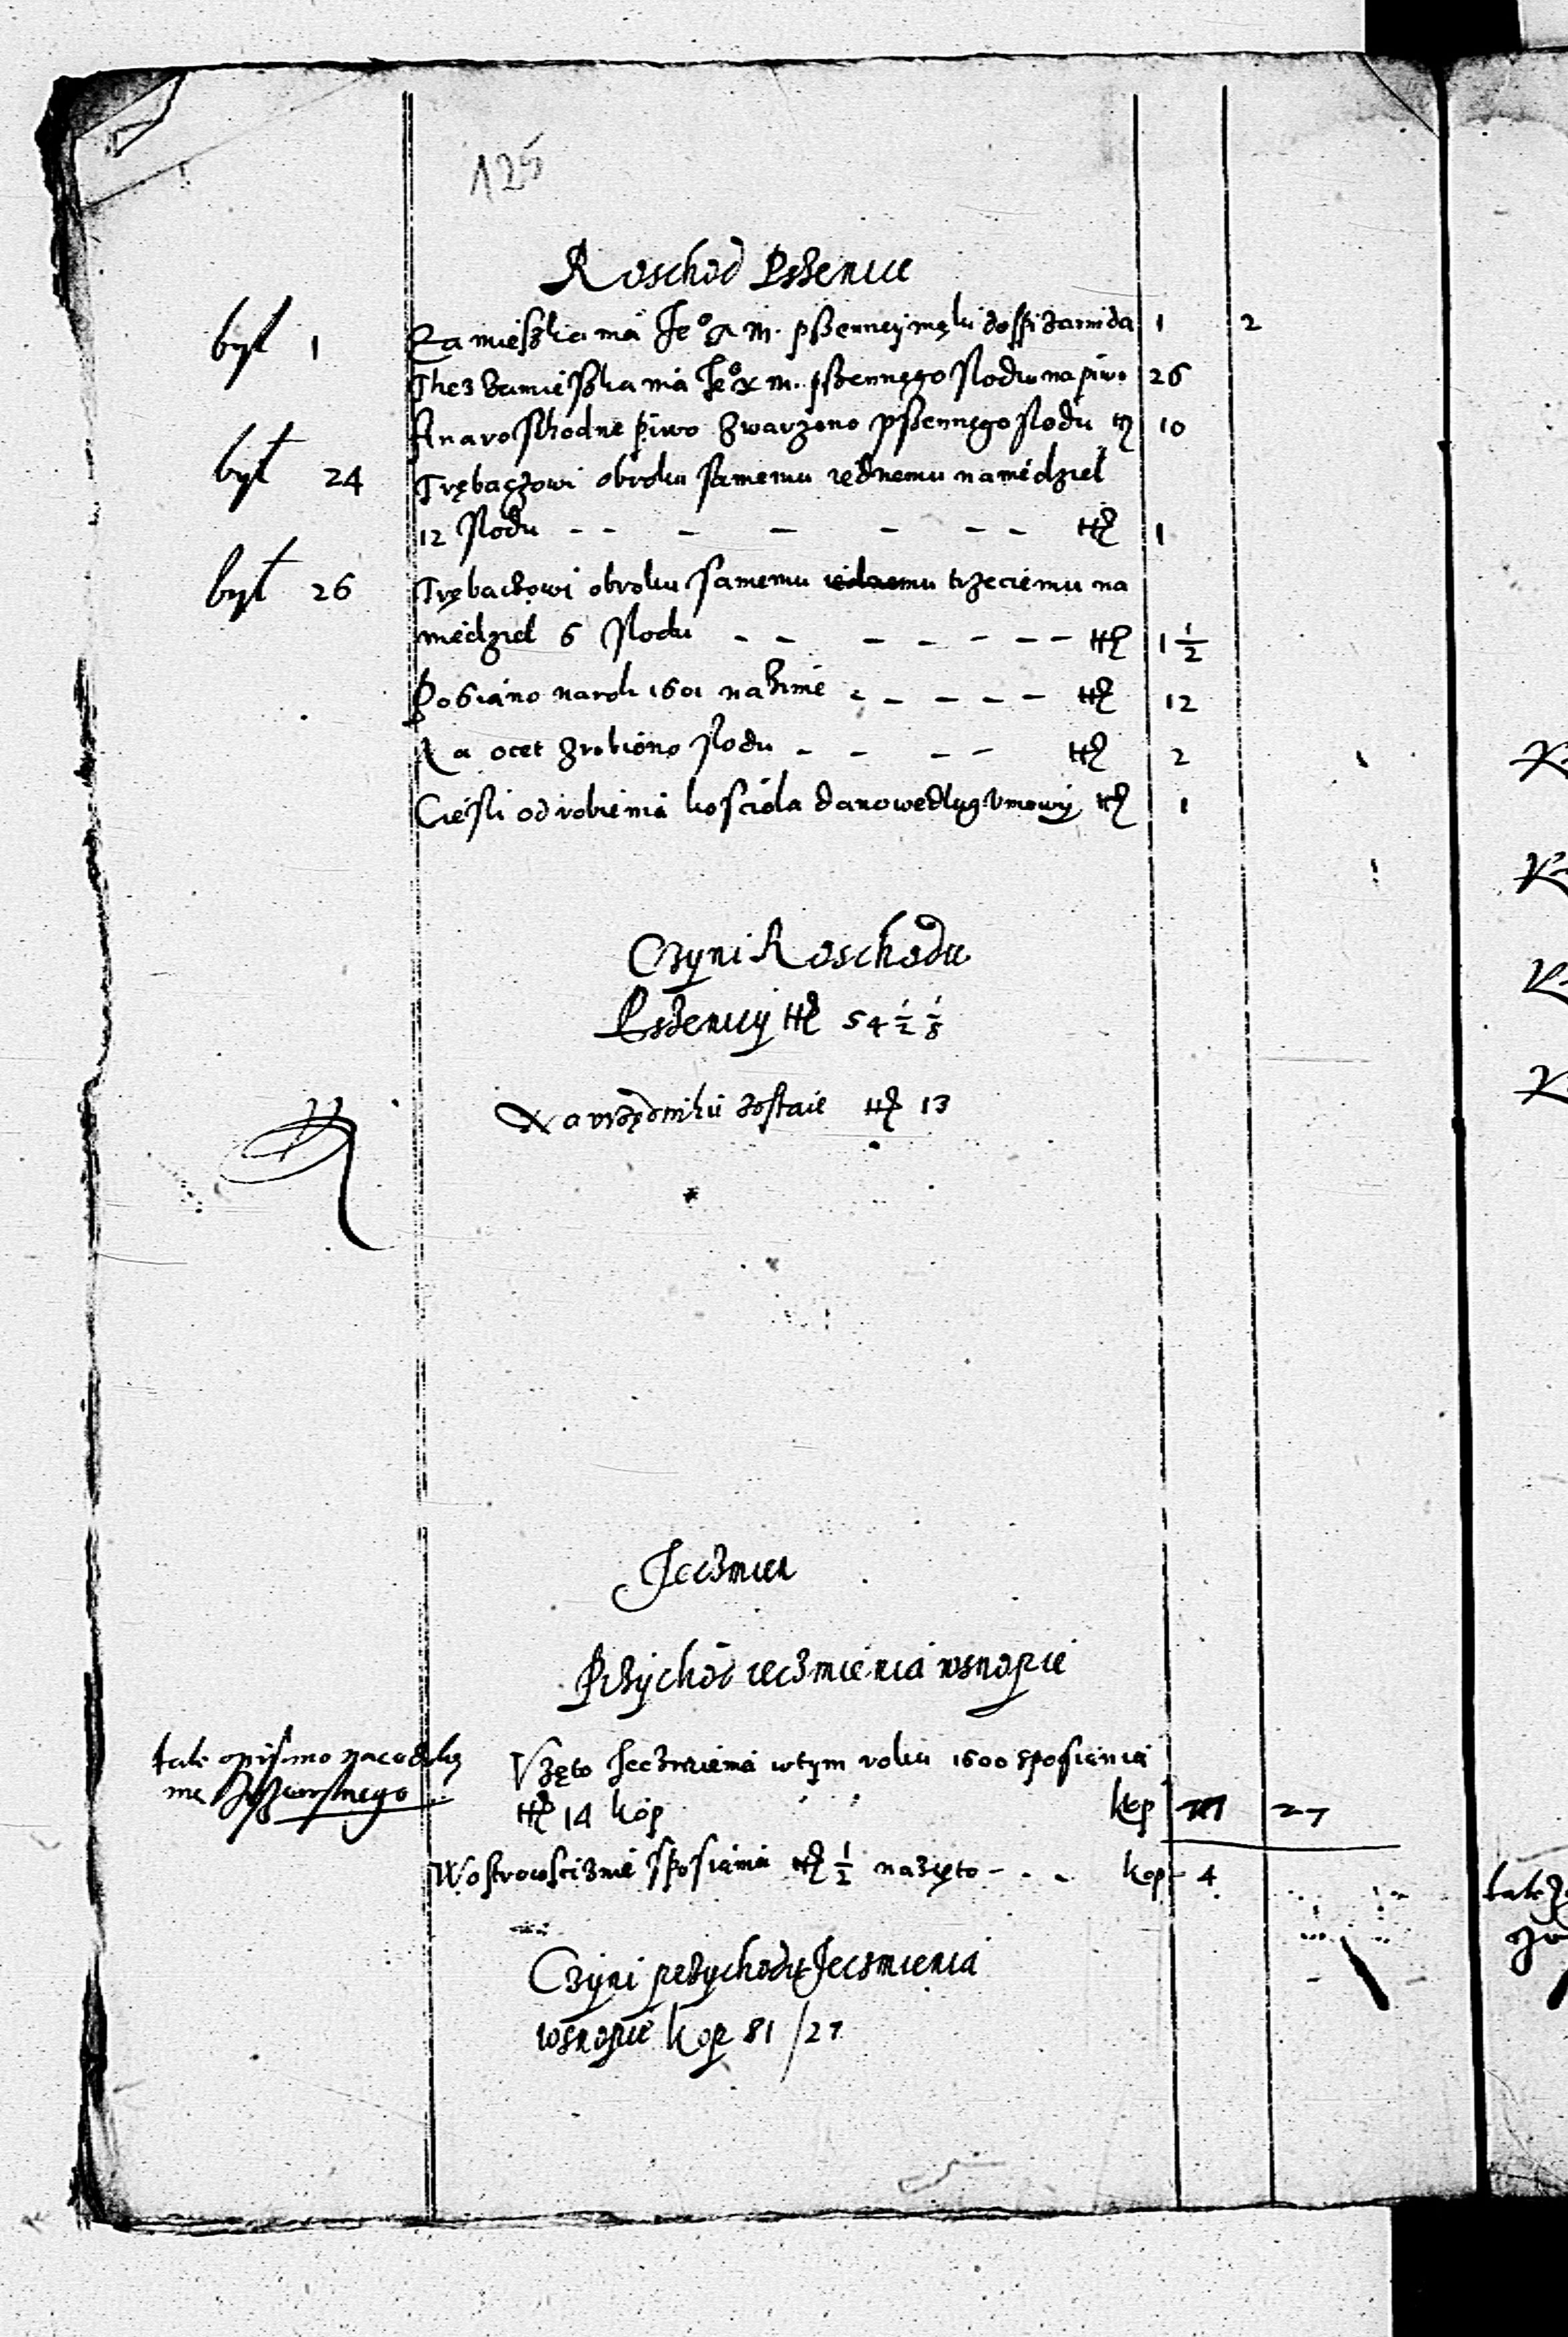 125
Roschod Pszenice
był 1 Za mieszkania Je° K M. pszenney mąki do spizarni da 1 2
Thez za mieszkania Je° K m. pszennego słodu na piwo 26
A na roschodne piwo zwarzono pszennego słodu 10
był 24 Trębaczowi obroku samemu iednemu na niedziel
12 słodu - - - - - - - 1
był 26 Trębaczowi obroku samemu iednemu trzeciemu na
niedziel 6 słodu - - - - - - - 1 1/2
Posiano na rok 1601 na zimę - - - - - 12
Na ocet zrobiono słodu - - - - 2
Cieśli od robienia kościoła dano według Umowy 1
Czyni Roschodu
Pszenicy 54 1/2 1/8
Na urzędniku zostaie 13
Jeczmien
Przychod ieczmienia w snopie
tak opisano
Uzęto Jeczmienia w tym roku 1600 z posiania
14 kop kop 77 27
W ostrowsciznie z posiania 1/2 nazęto - . - kop 4
Czyni przychodu Jeczmienia
w snopie kop 81/27